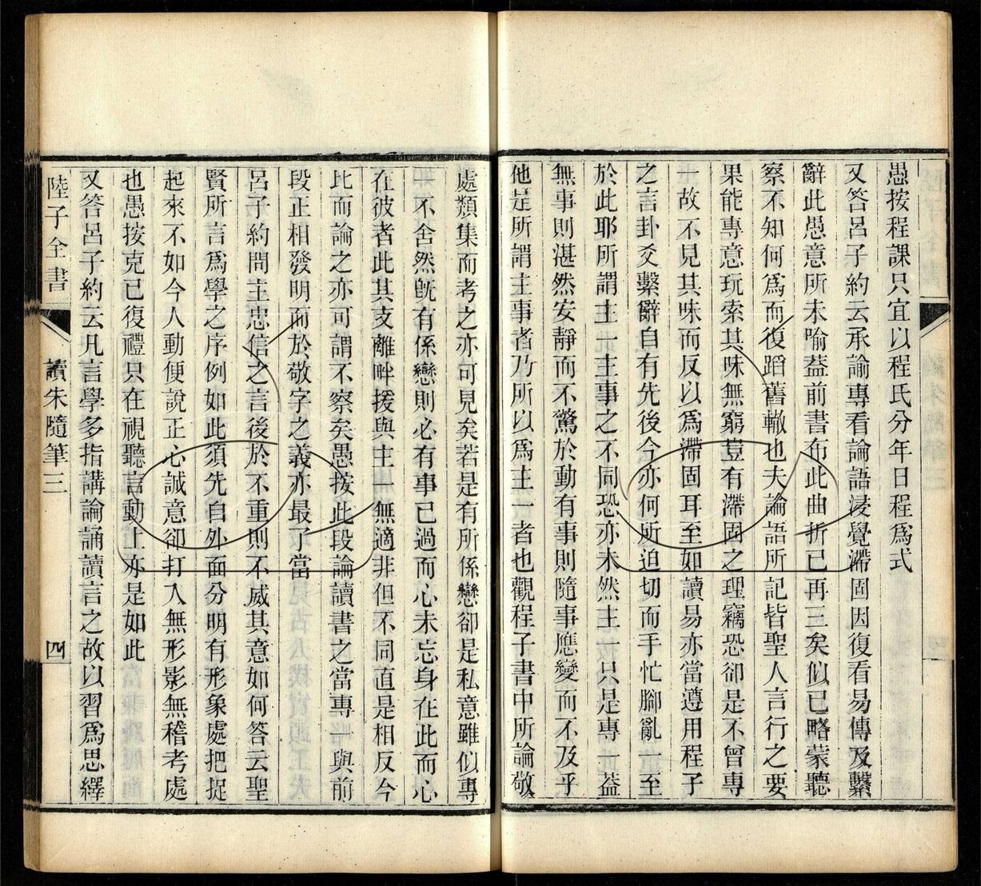 愚按程課只宜以程氏分年日程爲式
又答呂子約云承諭專看論語浸覺滯固因復看易傳及繫
辭此愚意所未喻葢前書布此曲折已再三矣似已略蒙聽
察不知何爲而復蹈舊轍也夫論語所記皆聖人言行之要
果能專意玩索其味無窮豈有滯固之理竊恐卻是不曾專
一故不見其味而反以爲滯固耳至如讀易亦當遵用程子
之言卦爻繫辭自有先後今亦何所迫切而手忙腳亂一至
於此耶所謂主一主事之不同恐亦未然主一只是專一葢
無事則湛然安靜而不驚於動有事則隨事應變而不及乎
他是所謂主事者乃所以爲主一者也觀程子書中所論敬
處類集而考之亦可見矣若是有所係戀卻是私意雖似專
一不舍然旣有係戀則必有事已過而心未忘身在此而心
在彼者此其支離畔援與主一無適非但不同直是相反今
比而論之亦可謂不察矣愚按此段論讀書之當專一與前
段正相發明而於敬字之義亦最了當
呂子約問主忠信之言後於不重則不威其意如何答云聖
賢所言爲學之序例如此須先自外面分明有形象處把捉
起來不如今人動便說正心誠意卻打入無形影無稽考處
也愚按克己復禮只在視聽言動上亦是如此
又答呂子約云凡言學多指講論誦讀言之故以習爲思繹
陸子全書
讀朱隨筆三
四